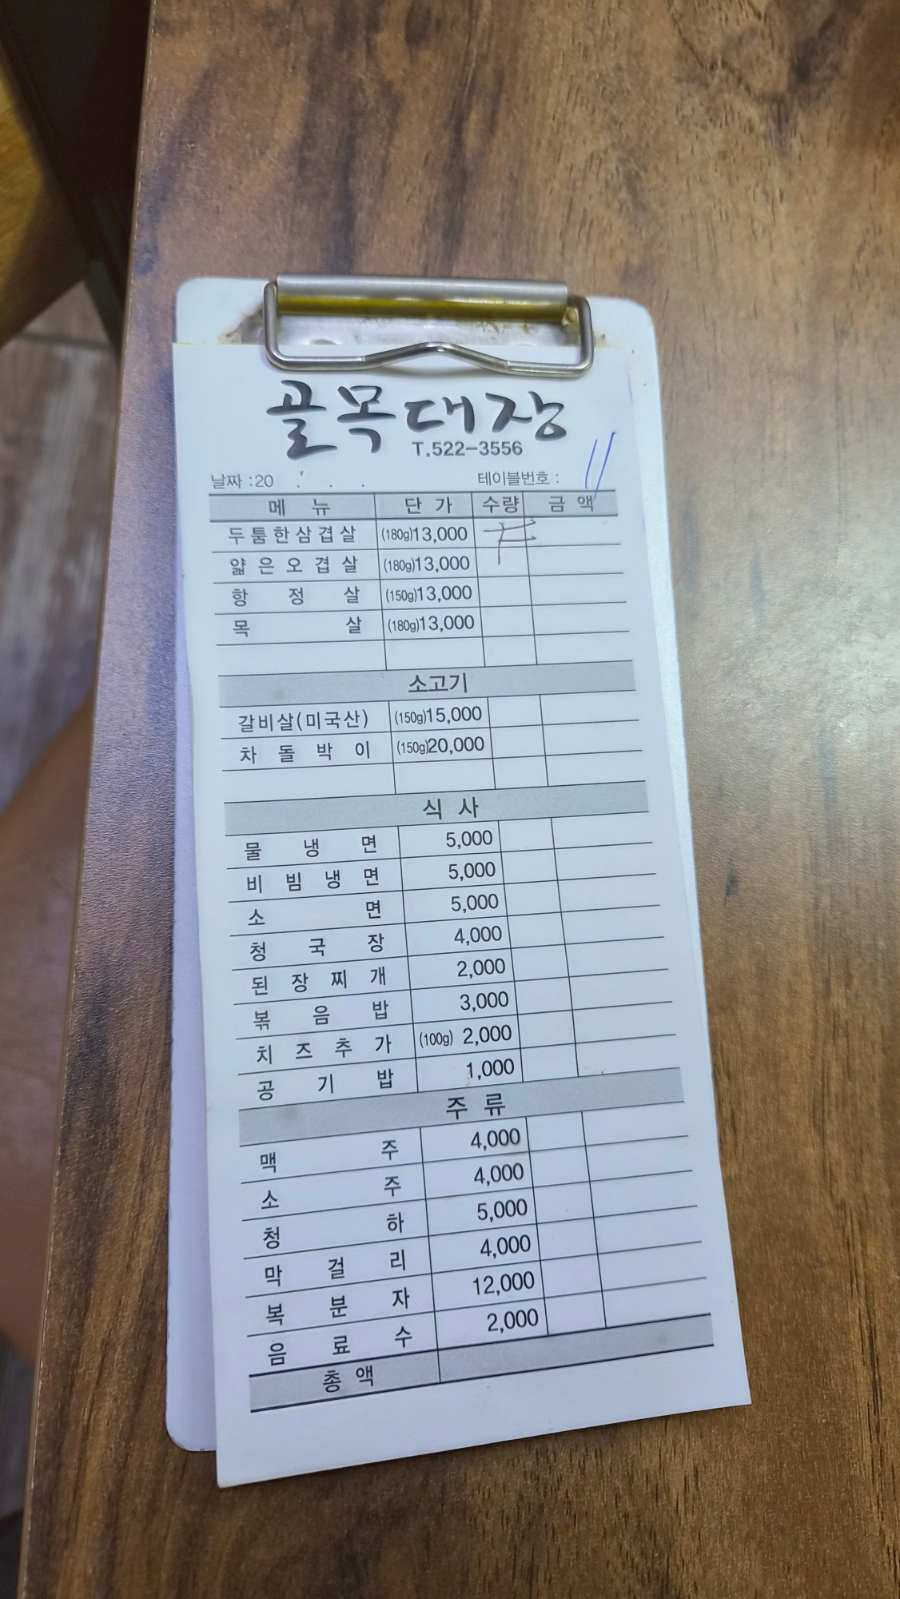 골목대장
T.522-3556
날짜 :20 . . . 테이블번호 : 11
메 뉴 단 가 수량 금 액
두툼한삼겹살 (180g)13,000
얇은오겹살 (180g)13,000
항 정 살 (150g)13,000
목 살 (180g)13,000
소고기
갈비살(미국산) (150g)15,000
차 돌 박 이 (150g)20,000
식 사
물 냉 면 5,000
비 빔 냉 면 5,000
소 면 5,000
청 국 장 4,000
된 장 찌 개 2,000
볶 음 밥 3,000
치 즈 추 가 (100g) 2,000
공 기 밥 1,000
주 류
맥 주 4,000
소 주 4,000
청 하 5,000
막 걸 리 4,000
복 분 자 12,000
음 료 수 2,000
총 액